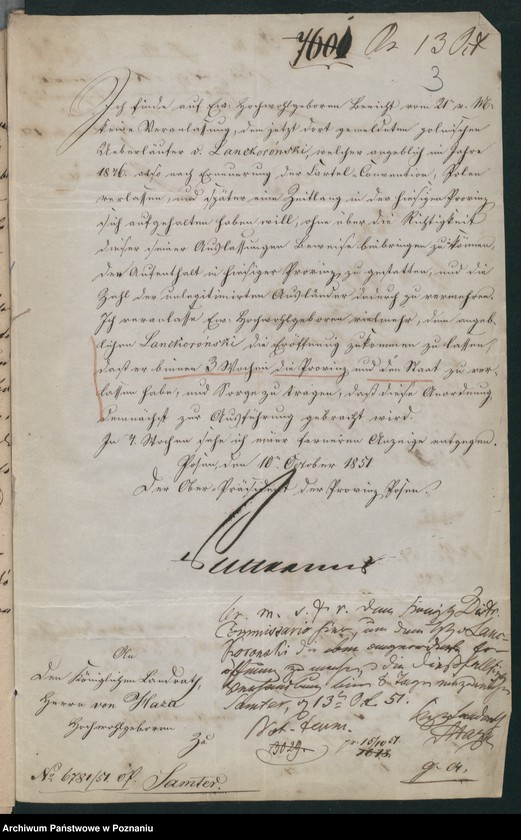 7601 13 Oct
3
Ich finde auf Ew: Hochwohlgeboren Bericht vom 21 v. M.
keine Veranlassung, dem jetzt dort gemeldeten polnischen
Ueberläufer v. Lanckoroński, welcher angeblich im Jahre
1846. also nach Erneuerung der Cartel-Convention, Polen
verlassen, und später eine Zeitlang in der hiesigen Provinz
sich aufgehalten haben will, ohne über die Richtigkeit
dieser seiner Auslassungen Beweise beibringen zu können,
den Aufenthalt in hiesiger Provinz zu gestatten, und die
Zahl der unlegitimirten Ausländer dadurch zu vermehren.
Ich veranlasse Ew: Hochwohlgeboren vielmehr, dem angeb-
lichen Lanckoroński die Eröffnung zukommen zu lassen,
daß er binnen 3 Wochen die Provinz und den Staat zu ver-
lassen habe, und Sorge zu tragen, daß diese Anordnung
demnächst zur Ausführung gebracht wird.
In 4 Wochen sehe ich einer ferneren Anzeige entgegen.
Posen, den 10ten October 1851
Der Ober-Präsident der Provinz Posen.
m. d. dem Königl. Distr.
Commissario hier, um dem v. Lanc-
koronski die oben angeordnete Er-
öffnung zu machen, die
8 Tagen
Samter, 13ten Oct. 51.
An
Den Königlichen Landrath,
Herrn von Haza
Hochwohlgeboren
Zu
Samter.
No 6781/51
pr. 15/10 51.
Archiwum Państwowe w Poznaniu